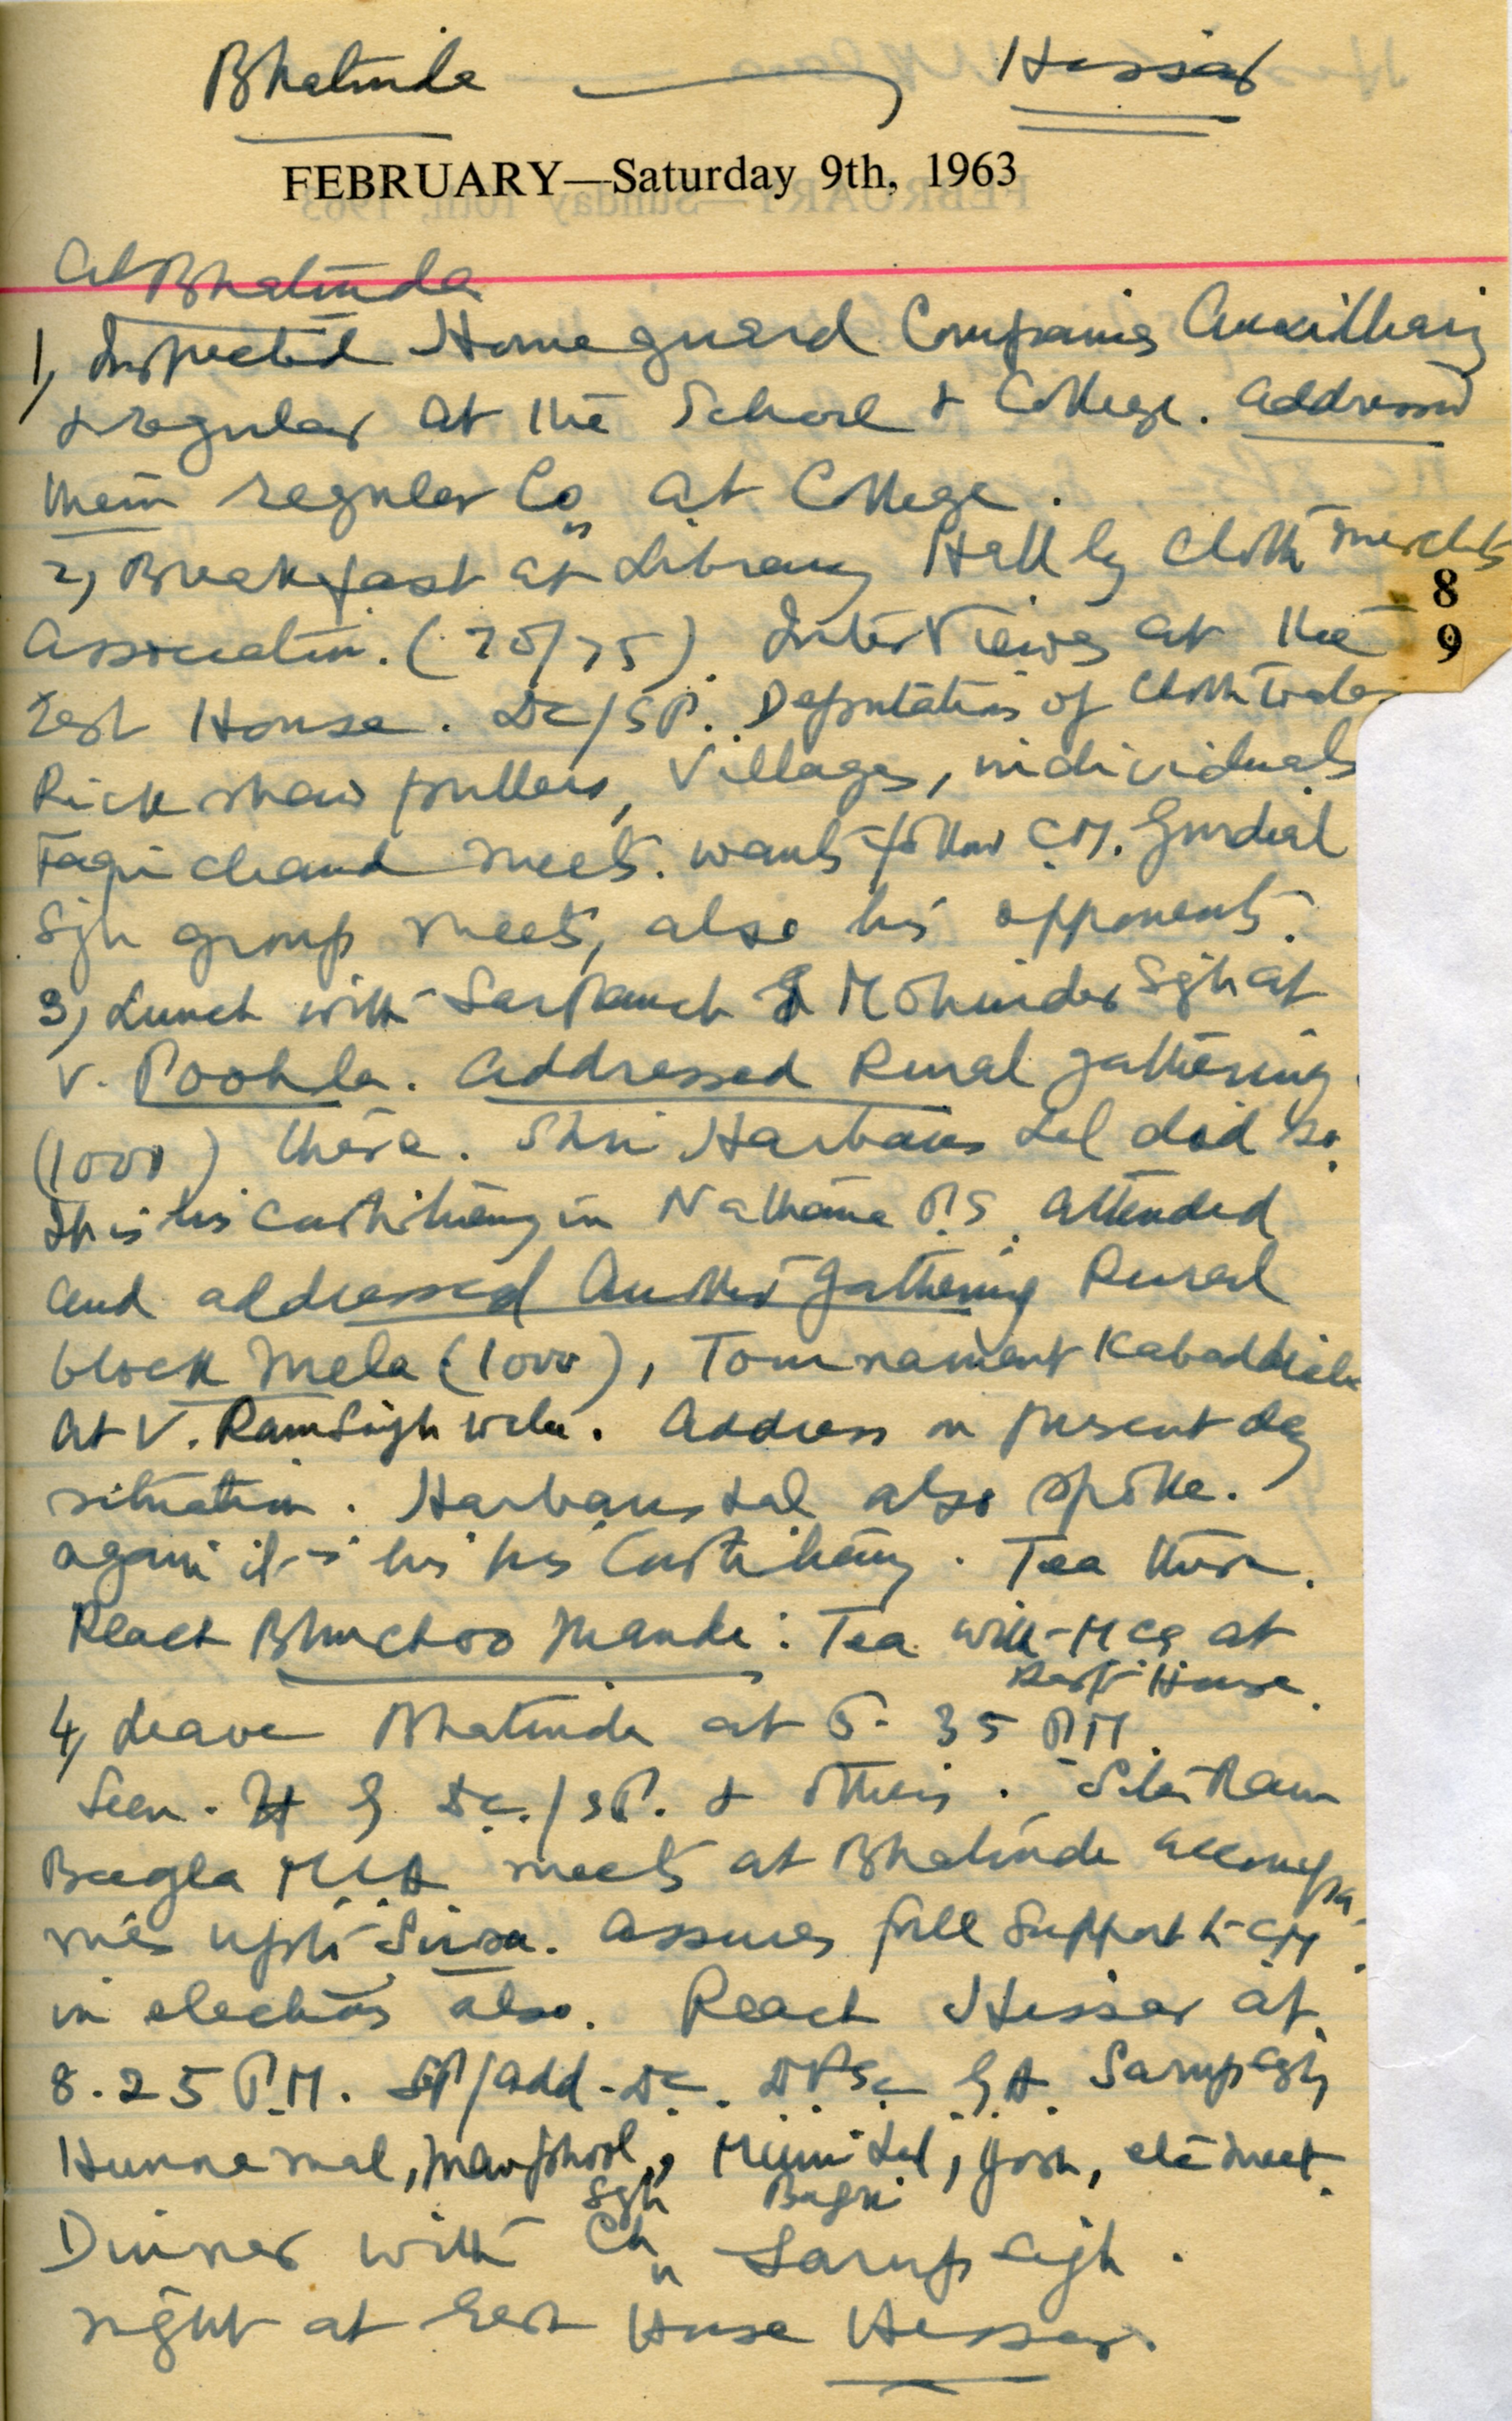 Bhatinda Hissar
FEBRUARY—Saturday 9th, 1963
At Bhatinda
1, Inspected Home guard Companies Auxilliary
& regular at the School & College. Addressed
them regular Co at College.
2, Breakfast at Library Hall by Cloth merchts
Association. (70/75). Interviews at the
Rest House. DC/SP. Deputations of Cloth Traders
Rickshaw pullers, Villages, individuals
Faqir chand meets. wants follow C.M. Gurdial
Sgh group meets, also his opponents.
3, Lunch with Sarpanch S Mohinder Sgh at
V. Poohla. Addressed Rural gathering
(1000) there. Shri Harbans Lal did so.
It is his in Nathana P.S. Attended
and addressed Another gathering Rural
block Mela (1000), Tournament Kabaddi
At V. Ram Singh wala. Address on present day
situation. Harbans Lal also spoke.
again it is his his . Tea there.
Reach Bhuchoo Mandi: Tea with at
Rest House.
4, Leave Bhatinda at 5.35 PM.
Seen. DC./SP. & others. Sita Ram
Bagla MLA meets at Bhatinda accompa
nies upto Sirsa. Assures full support to CM
in elections also. Reach Hissar at
8.25 P.M. SP/Add. DC. GA. Sarup Sgh,
Hunna mal, Manphool, Muni Lal, Josh, etc meet.
Sgh Bagri
Dinner with Ch Sarup Sigh.
night at Rest House Hissar.
8
9